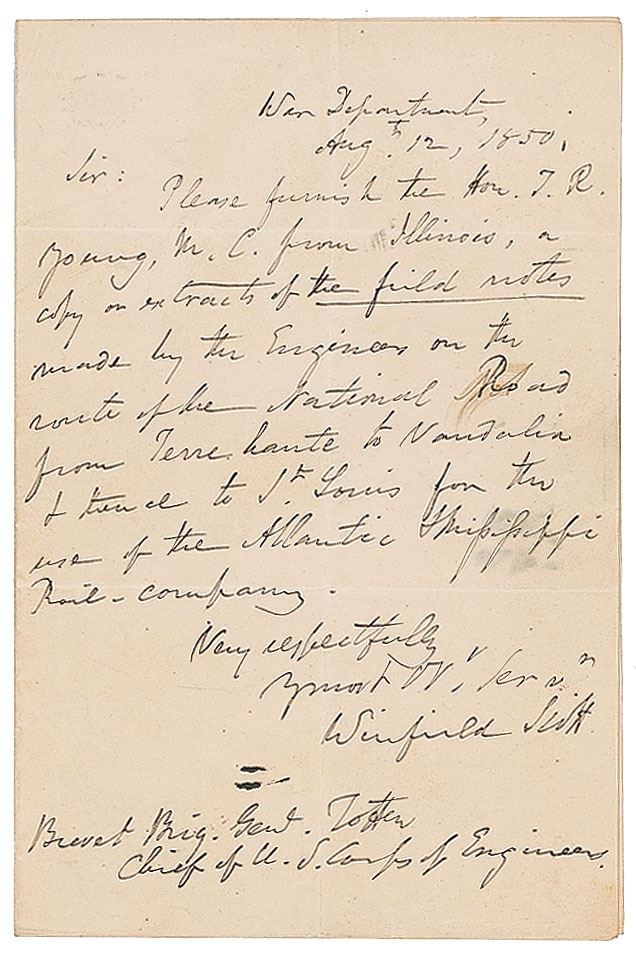 War Department,
Augt. 12, 1850.
Sir:
Please furnish the Hon. T. R.
Young, M. C. from Illinois, a
copy or extracts of the field notes
made by the Engineers on the
route of the National Road
from Terre haute to Vandalia
& thence to St. Louis for the
use of the Atlantic & Mississippi
Rail-company.
Very respectfully
Servt
Winfield Scott.
Brevet Brig. Genl. Totten
Chief of U. S. Corps of Engineers.